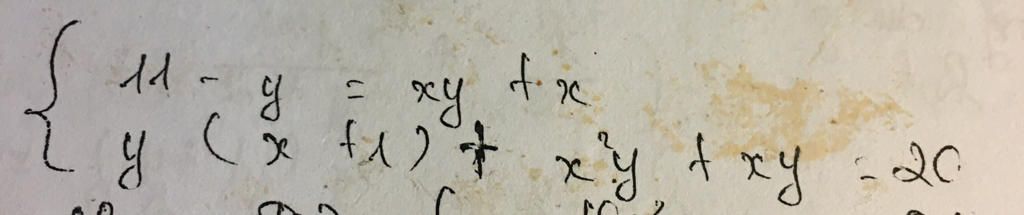 11 - y = xy + x
y (x + 1) + x²y + xy = 20